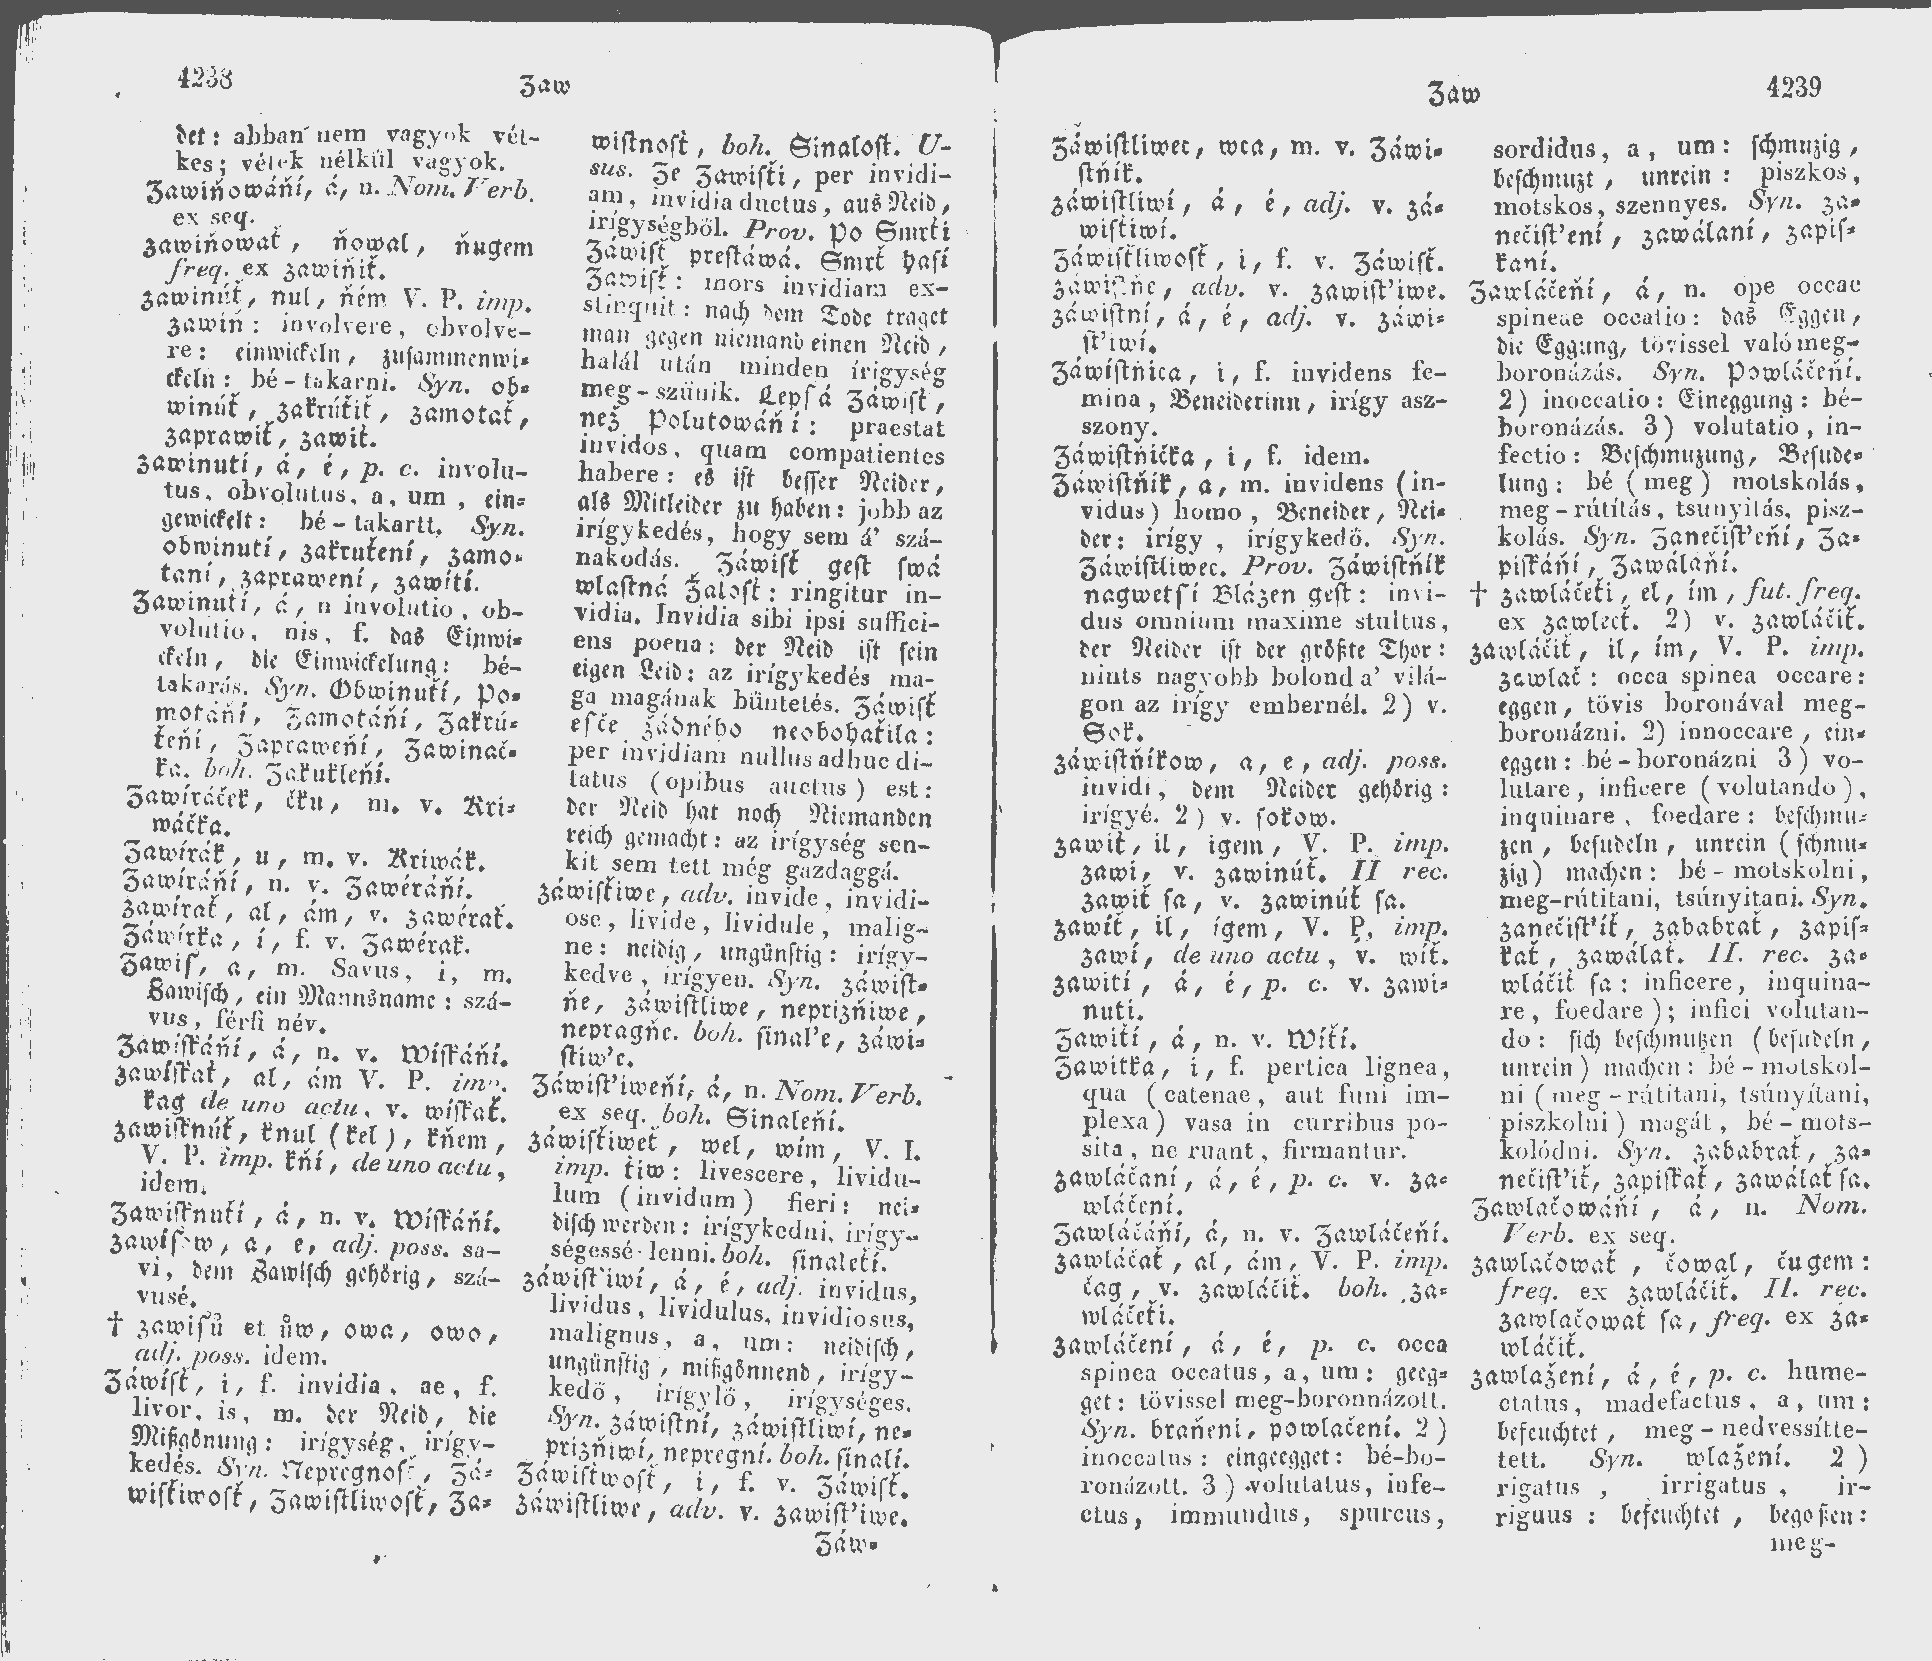 4238
Zaw
det: abban nem vagyok vét-
kes; vétek nélkül vagyok.
Zawiňowáňí, á, n. Nom. Verb.
ex seq.
zawiňowať, ňowal, ňugem
freq. ex zawiňiť.
zawinúť, nul, ňém V. P. imp.
zawiň: involvere, obvolve-
re: einwickeln, zusammenwi-
ckeln: bé-takarni. Syn. ob-
winúť, zakrúťiť, zamotať,
zaprawiť, zawiť.
zawinutí, á, é, p. c. involu-
tus, obvolutus, a, um, ein-
gewickelt: bé-takartt. Syn.
obwinutí, zakruťení, zamo-
taní, zaprawení, zawití.
Zawinutí, á, n involutio, ob-
volutio, nis, f. das Einwi-
ckeln, die Einwickelung: bé-
takarás. Syn. Obwinuťí, Po-
motáňí, Zamotáňí, Zakrú-
ťeňí, Zapraweňí, Zawinač-
ka. boh. Zakukleňí.
Zawíráček, čku, m. v. Kri-
wáčka.
Zawírák, u, m. v. Kriwák.
Zawíráňí, n. v. Zawéráňí.
zawírať, al, ám, v. zawérať.
Záwírka, i, f. v. Zawérak.
Zawiſ, a, m. Savus, i, m.
Sawiſch, ein Mannsname: szá-
vus, férfi név.
Zawíſkáňí, á, n. v. Wíſkáňí.
zawíſkať, al, ám V. P. imp.
kag de uno actu, v. wíſkať.
zawíſknúť, knul (kel), kňem,
V. P. imp. kňí, de uno actu,
idem.
Zawíſknuťí, á, n. v. Wíſkáňí.
zawiſow, a, e, adj. poss. sa-
vi, dem Sawiſch gehörig, szá-
vusé.
† zawiſů et ůw, owa, owo,
adj. poss. idem.
Záwiſť, i, f. invidia, ae, f.
livor, is, m. der Neid, die
Mißgönung: irígység, irígy-
kedés. Syn. Nepregnoſť, Zá-
wiſťiwoſť, Zawiſtliwoſť, Za-
wiſtnoſť, boh. Sinaloſt. U-
sus. Ze Zawiſťi, per invidi-
am, invidia ductus, aus Neid,
irígységböl. Prov. Po Smrťi
Záwiſť preſtáwá. Smrť haſí
Zawiſť: mors invidiam ex-
stinquit: nach dem Tode traget
man gegen niemand einen Neid,
halál után minden irígység
meg-szünik. Lepſá Záwiſť,
než Polutowáňí: praestat
invidos, quam compatientes
habere: es iſt beſſer Neider,
als Mitleider zu haben: jobb az
irígykedés, hogy sem á' szá-
nakodás. Záwiſť geſt ſwá
wlaſtná Žaloſť: ringitur in-
vidia. Invidia sibi ipsi suffici-
ens poena: der Neid iſt ſein
eigen Leid: az irígykedés ma-
ga magának büntetés. Záwiſť
eſče žádného neobohaťila:
per invidiam nullus adhuc di-
tatus (opibus auctus) est:
der Neid hat noch Niemanden
reich gemacht: az irígység sen-
kit sem tett még gazdaggá.
záwiſťiwe, adv. invide, invidi-
ose, livide, lividule, malig-
ne: neidig, ungünſtig: irígy-
kedve, irígyen. Syn. záwiſt-
ňe, záwiſtliwe, neprizňiwe,
nepragňe. boh. ſinal'e, záwi-
ſtiw'e.
Záwiſt'iweňí, á, n. Nom. Verb.
ex seq. boh. Sinaleňí.
záwiſťiweť, wel, wím, V. I.
imp. ťiw: livescere, lividu-
lum (invidum) fieri: nei-
diſch werden: irígykedni, irígy-
ségessé-lenni. boh. ſinaleťi.
záwiſt'iwí, á, é, adj. invidus,
lividus, lividulus, invidiosus,
malignus, a, um: neidiſch,
ungünſtig, mißgönnend, irígy-
kedö, irígylö, irígységes.
Syn. záwiſtní, záwiſtliwí, ne-
prizňiwí, nepregní. boh. ſinalí.
Záwiſťiwoſť, i, f. v. Záwiſť.
záwiſtliwe, adv. v. zawiſt'iwe.
Záw-
Zaw
4239
Záwiſtliwec, wca, m. v. Záwi-
ſtňík.
záwiſtliwí, á, é, adj. v. zá-
wiſťiwí.
Záwiſtliwoſť, i, f. v. Záwiſť.
záwiſtňe, adv. v. zawiſt'iwe.
záwiſtní, á, é, adj. v. záwi-
ſt'iwí.
Záwiſtňica, i, f. invidens fe-
mina, Beneiderinn, irígy asz-
szony.
Záwiſtňička, i, f. idem.
Záwiſtňík, a, m. invidens (in-
vidus) homo, Beneider, Nei-
der: irígy, irígykedö. Syn.
Záwiſtliwec. Prov. Záwiſtňík
nagwetſí Blázen geſt: invi-
dus omnium maxime stultus,
der Neider iſt der größte Thor:
nints nagyobb bolond a' vilá-
gon az irígy embernél. 2) v.
Sok.
záwiſtňíkow, a, e, adj. poss.
invidi, dem Neider gehörig:
irígyé. 2) v. ſokow.
zawiť, il, igem, V. P. imp.
zawi, v. zawinúť. II rec.
zawiť ſa, v. zawinúť ſa.
zawíť, il, ígem, V. P. imp.
zawí, de uno actu, v. wíť.
zawití, á, é, p. c. v. zawi-
nutí.
Zawiťí, á, n. v. Wíťí.
Zawitka, i, f. pertica lignea,
qua (catenae, aut funi im-
plexa) vasa in curribus po-
sita, ne ruant, firmantur.
zawláčaní, á, é, p. c. v. za-
wláčení.
Zawláčáňí, á, n. v. Zawláčeňí.
zawláčať, al, ám, V. P. imp.
čag, v. zawláčiť. boh. za-
wláčeťi.
zawláčení, á, é, p. c. occa
spinea occatus, a, um: geeg-
get: tövissel meg-boronnázott.
Syn. braňení, powlačení. 2)
inoccatus: eingeegget: bé-bo-
ronázott. 3) volutatus, infe-
ctus, immundus, spurcus,
sordidus, a, um: ſchmuzig,
beſchmuzt, unrein: piszkos,
motskos, szennyes. Syn. za-
nečiſt'ení, zawálaní, zapiſ-
kaní.
Zawláčeňí, á, n. ope occae
spineae occatio: das Eggen,
die Eggung, tövissel való meg-
boronázás. Syn. Powláčeňí.
2) inoccatio: Eineggung: bé-
boronázás. 3) volutatio, in-
fectio: Beſchmuzung, Beſude-
lung: bé (meg) motskolás,
meg-rútítás, tsunyitás, pisz-
kolás. Syn. Zanečiſt'eňí, Za-
piſkáňí, Zawálaňí.
† zawláčeťi, el, ím, fut. freq.
ex zawlecť. 2) v. zawláčiť.
zawláčiť, il, ím, V. P. imp.
zawlač: occa spinea occare:
eggen, tövis boronával meg-
boronázni. 2) innoccare, ein-
eggen: bé-boronázni 3) vo-
lutare, inficere (volutando),
inquinare, foedare: beſchmu-
zen, beſudeln, unrein (ſchmu-
zig) machen: bé-motskolni,
meg-rútitani, tsúnyitani. Syn.
zanečiſt'iť, zababrať, zapiſ-
kať, zawálať. II. rec. za-
wláčiť ſa: inficere, inquina-
re, foedare); infici volutan-
do: ſich beſchmutzen (beſudeln,
unrein) machen: bé-motskol-
ni (meg-rútitani, tsúnyítani,
piszkolni) magát, bé-mots-
kolódni. Syn. zababrať, za-
nečiſt'iť, zapiſkať, zawálať ſa.
Zawlačowáňí, á, n. Nom.
Verb. ex seq.
zawlačowať, čowal, čugem:
freq. ex zawláčiť. II. rec.
zawlačowať ſa, freq. ex za-
wláčiť.
zawlažení, á, é, p. c. hume-
ctatus, madefactus, a, um:
befeuchtet, meg-nedvessítte-
tett. Syn. wlažení. 2)
rigatus, irrigatus, ir-
riguus: befeuchtet, begoßen:
meg-